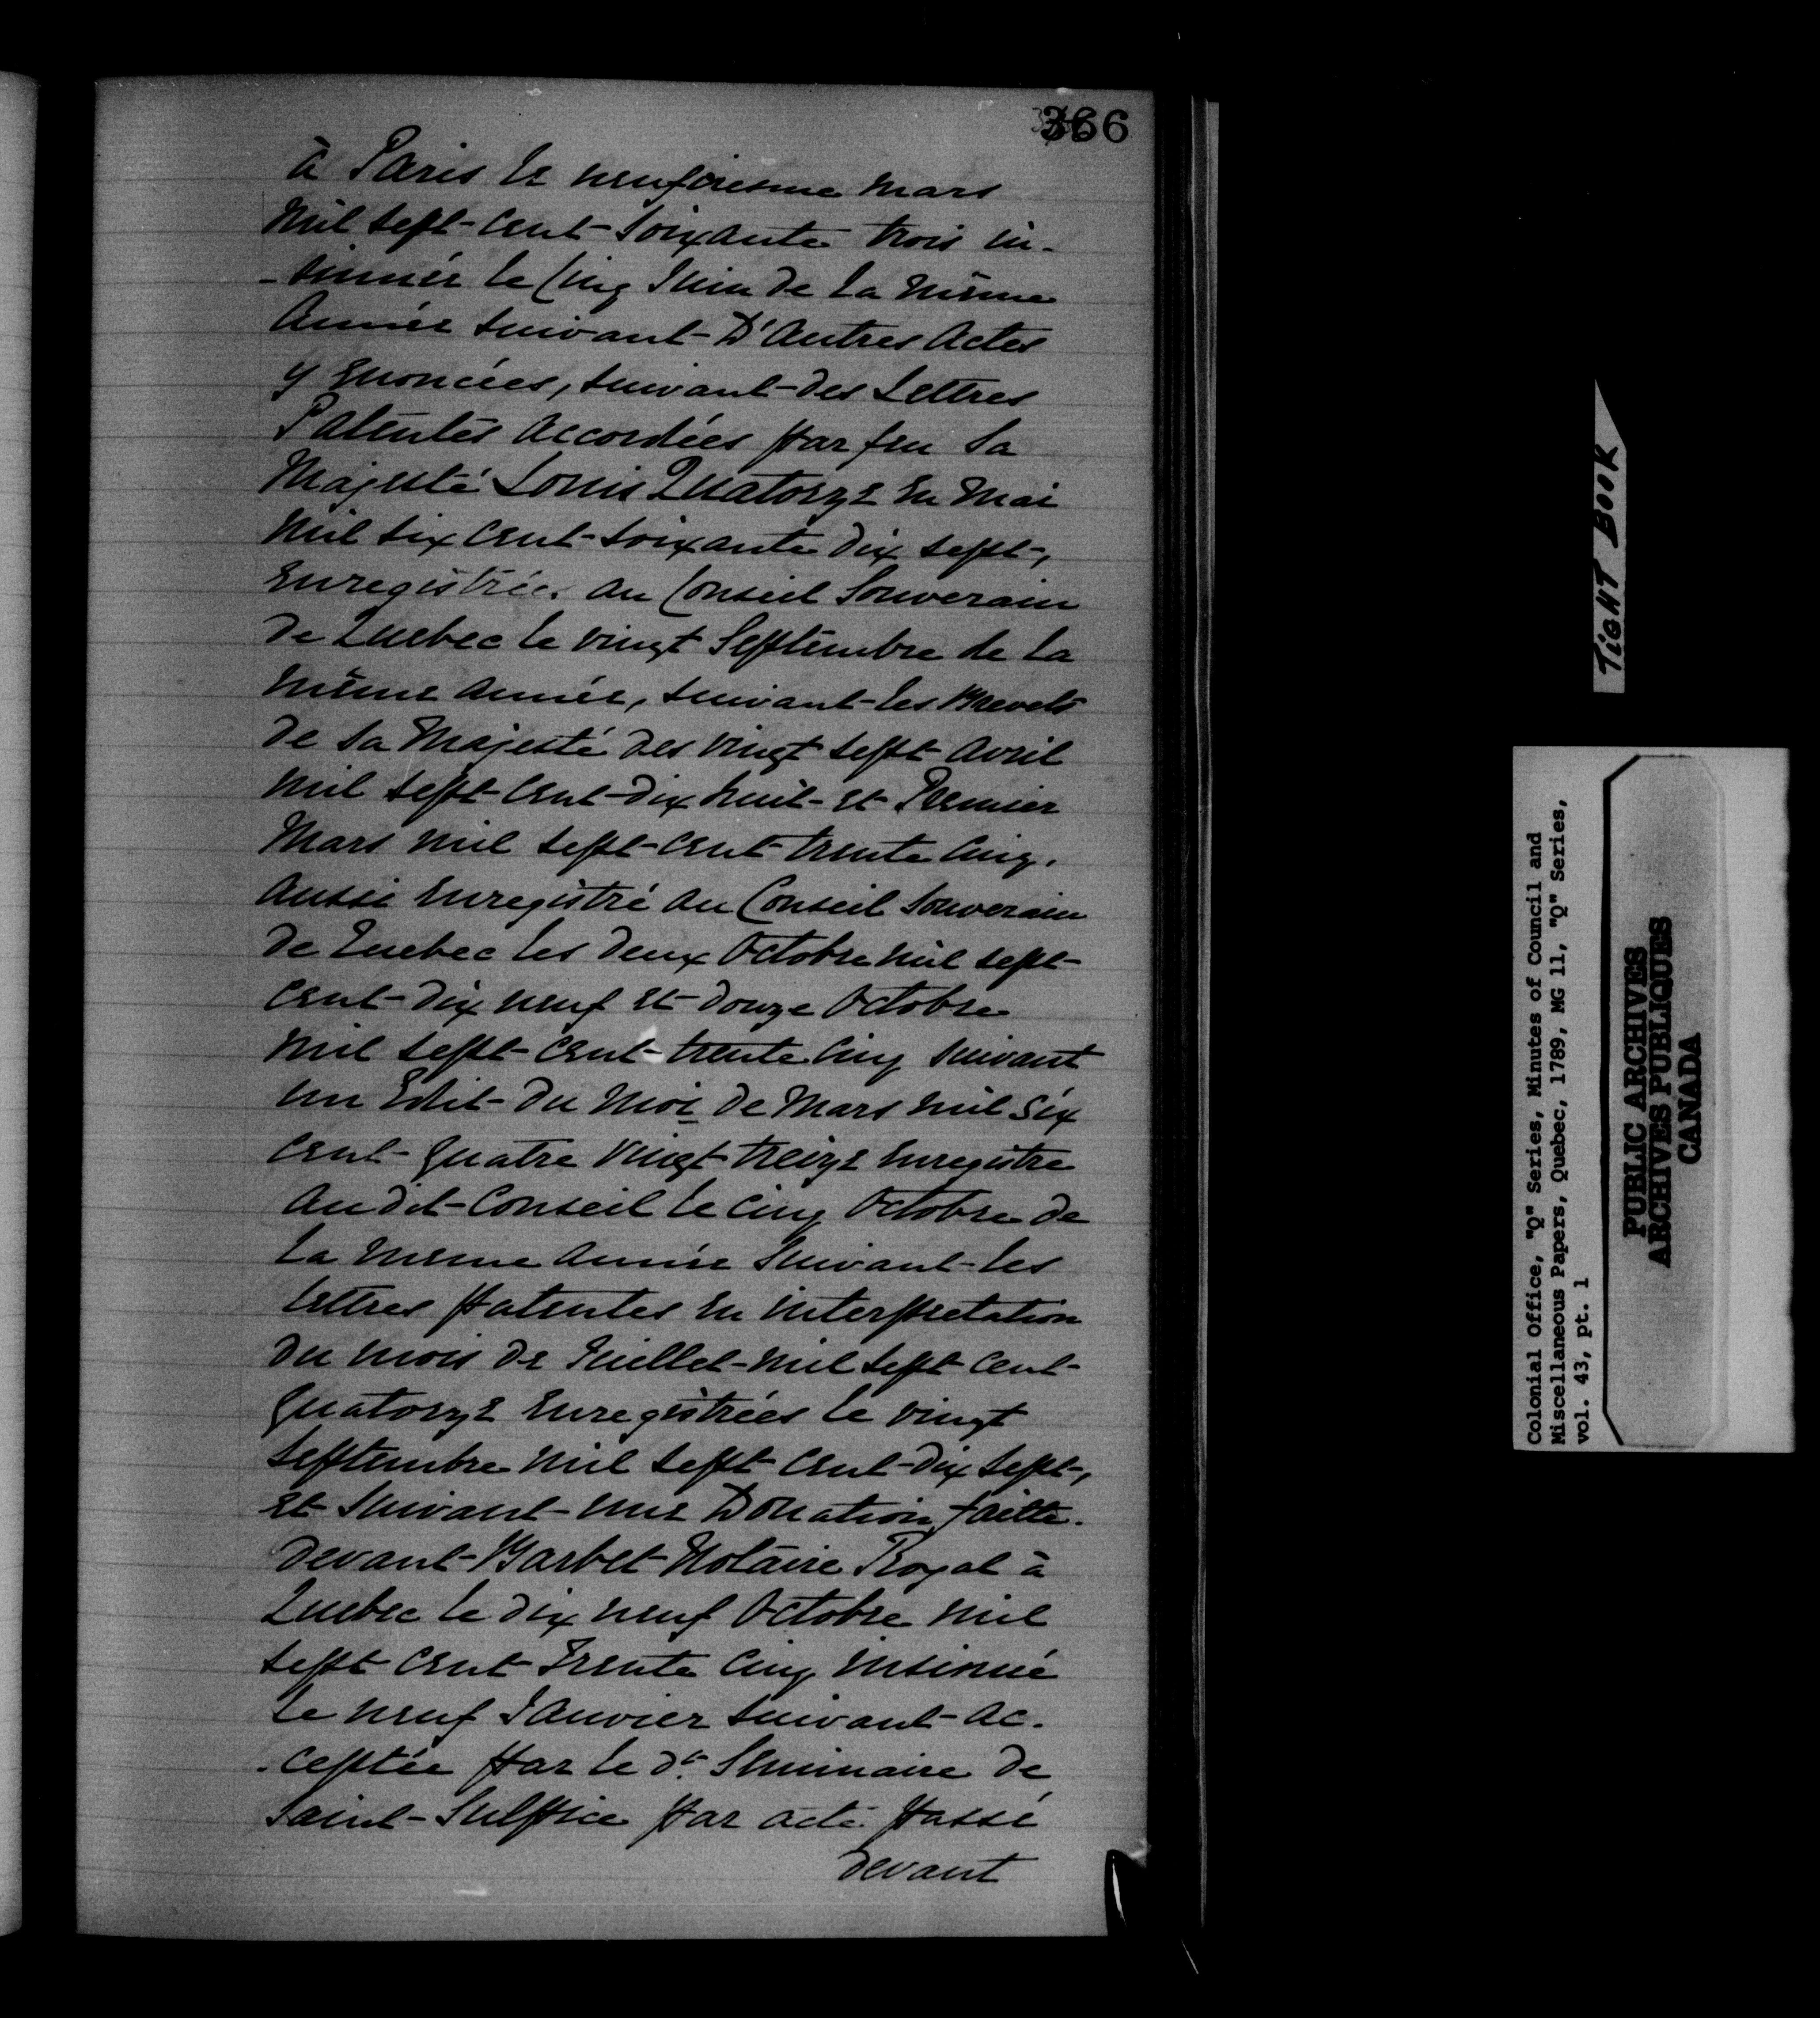 366
à Paris le neufviesme mars
mil sept-cent-soixante trois in-
-sinuée le Cinq Juin de la même
Année suivant-D'autres Actes
y Enoncées, suivant-des Lettres
Patentes accordées par feu Sa
Majesté Louis Quatorze en Mai
mil six cent-soixante dix sept-,
Enregistrées au Conseil Souverain
de Quebec le vingt Septembre de la
même année, suivant-les Brevets
de Sa Majesté des vingt sept avril
mil sept-cent-dix huit-et Premier
Mars mil sept-cent-trente cinq.
aussi Enregistré au Conseil Souverain
de Quebec les deux Octobre mil sept-
cent-dix neuf et-douze Octobre
mil sept-cent-trente cinq suivant
un Edit-du moi de Mars mil six
cent-quatre vingt treize Enregistre
au dit-Conseil le cinq Octobre de
la meme année suivant-les
lettres patentes en interpretation
du mois de Juillet-mil sept cent-
quatorze Enregistrées le vingt
septembre mil sept cent-dix sept-,
et suivant-une Donation faitte.
devant-Barbet-Notaire Royal à
Quebec le dix neuf Octobre mil
sept cent Trente cinq insinué
le neuf Janvier suivant-ac.
.ceptée par le dt Seminaire de
Saint-Sulpice par acte passé
devant
TIGHT BOOK
Colonial Office, "Q" Series, Minutes of Council and
Miscellaneous Papers, Quebec, 1789, MG 11, "Q" Series,
vol. 43, pt. 1
PUBLIC ARCHIVES
ARCHIVES PUBLIQUES
CANADA